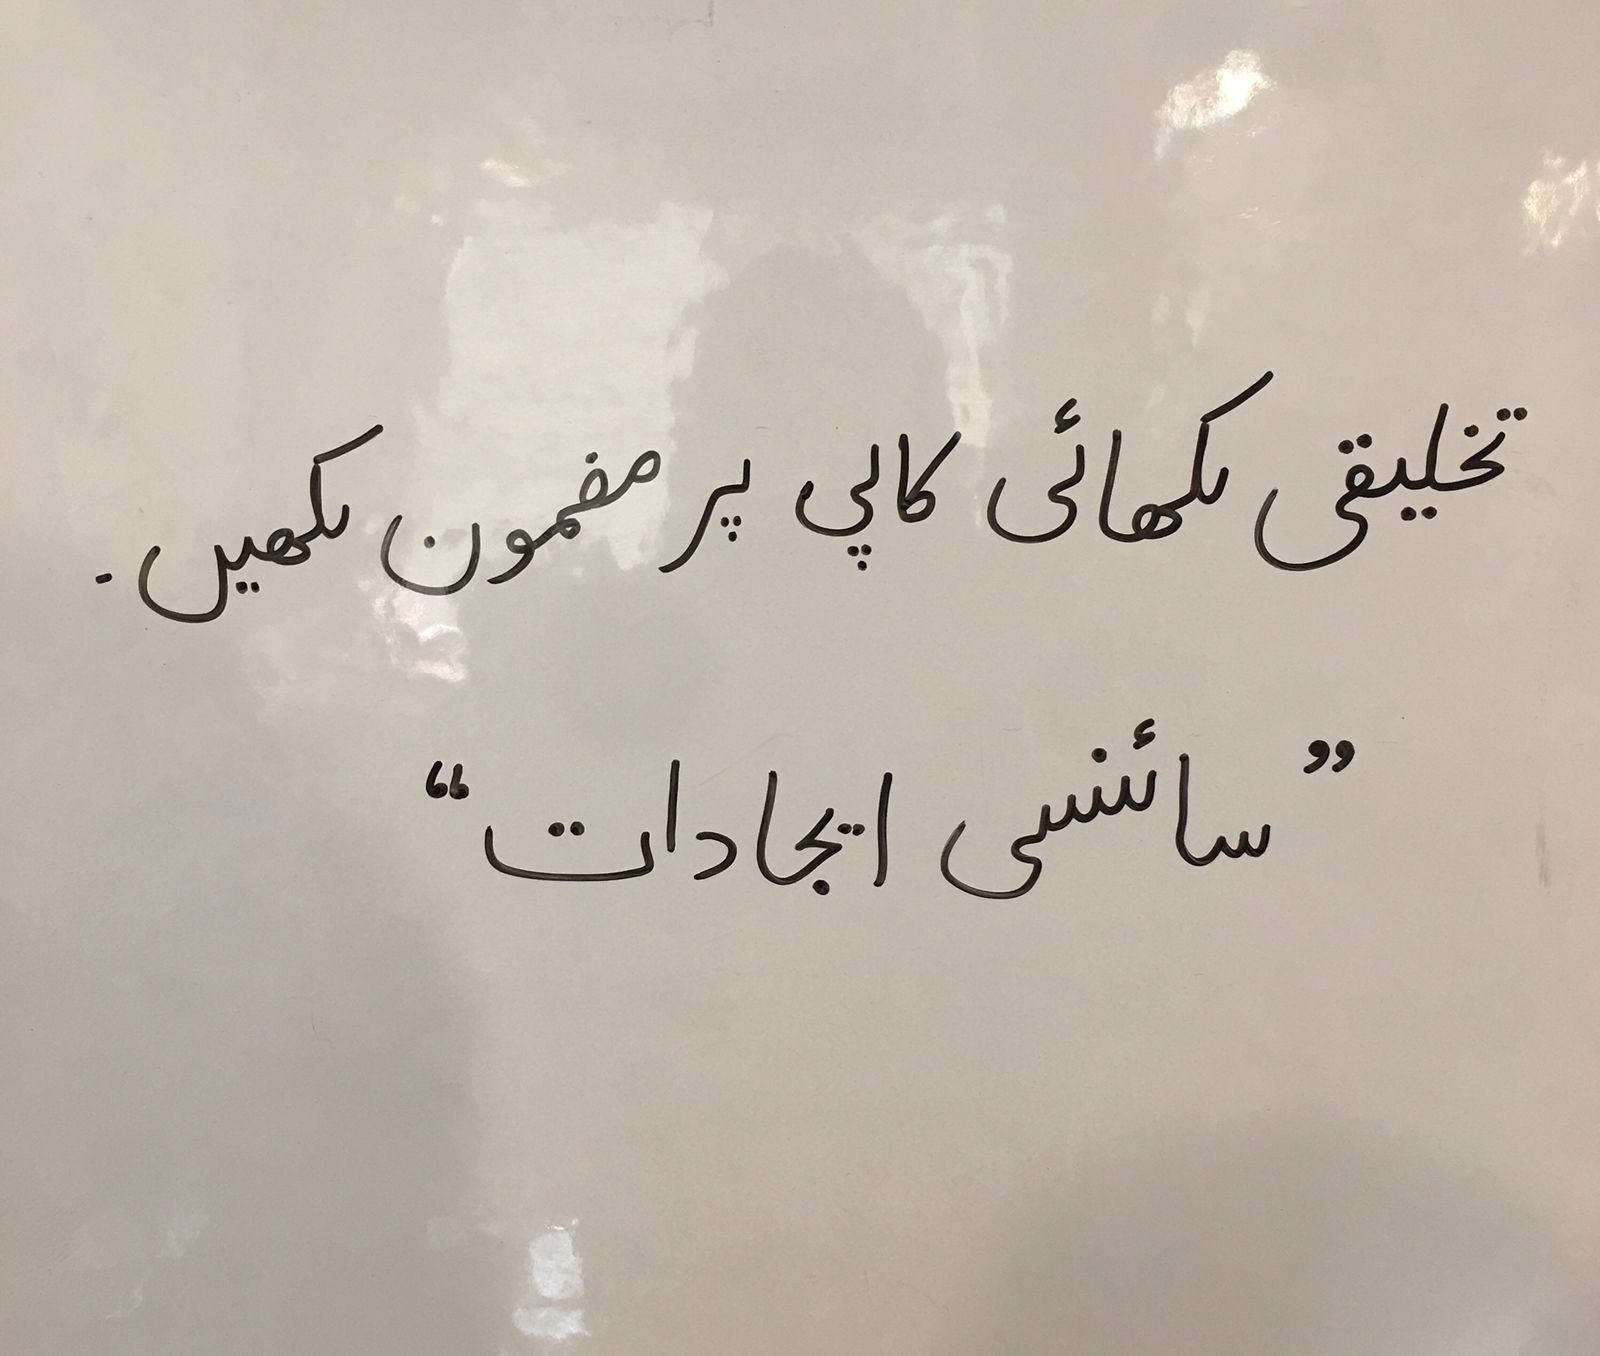 تخلیقی لکھائی کاپی پر مضمون لکھیں۔
”سائنسی ایجادات“